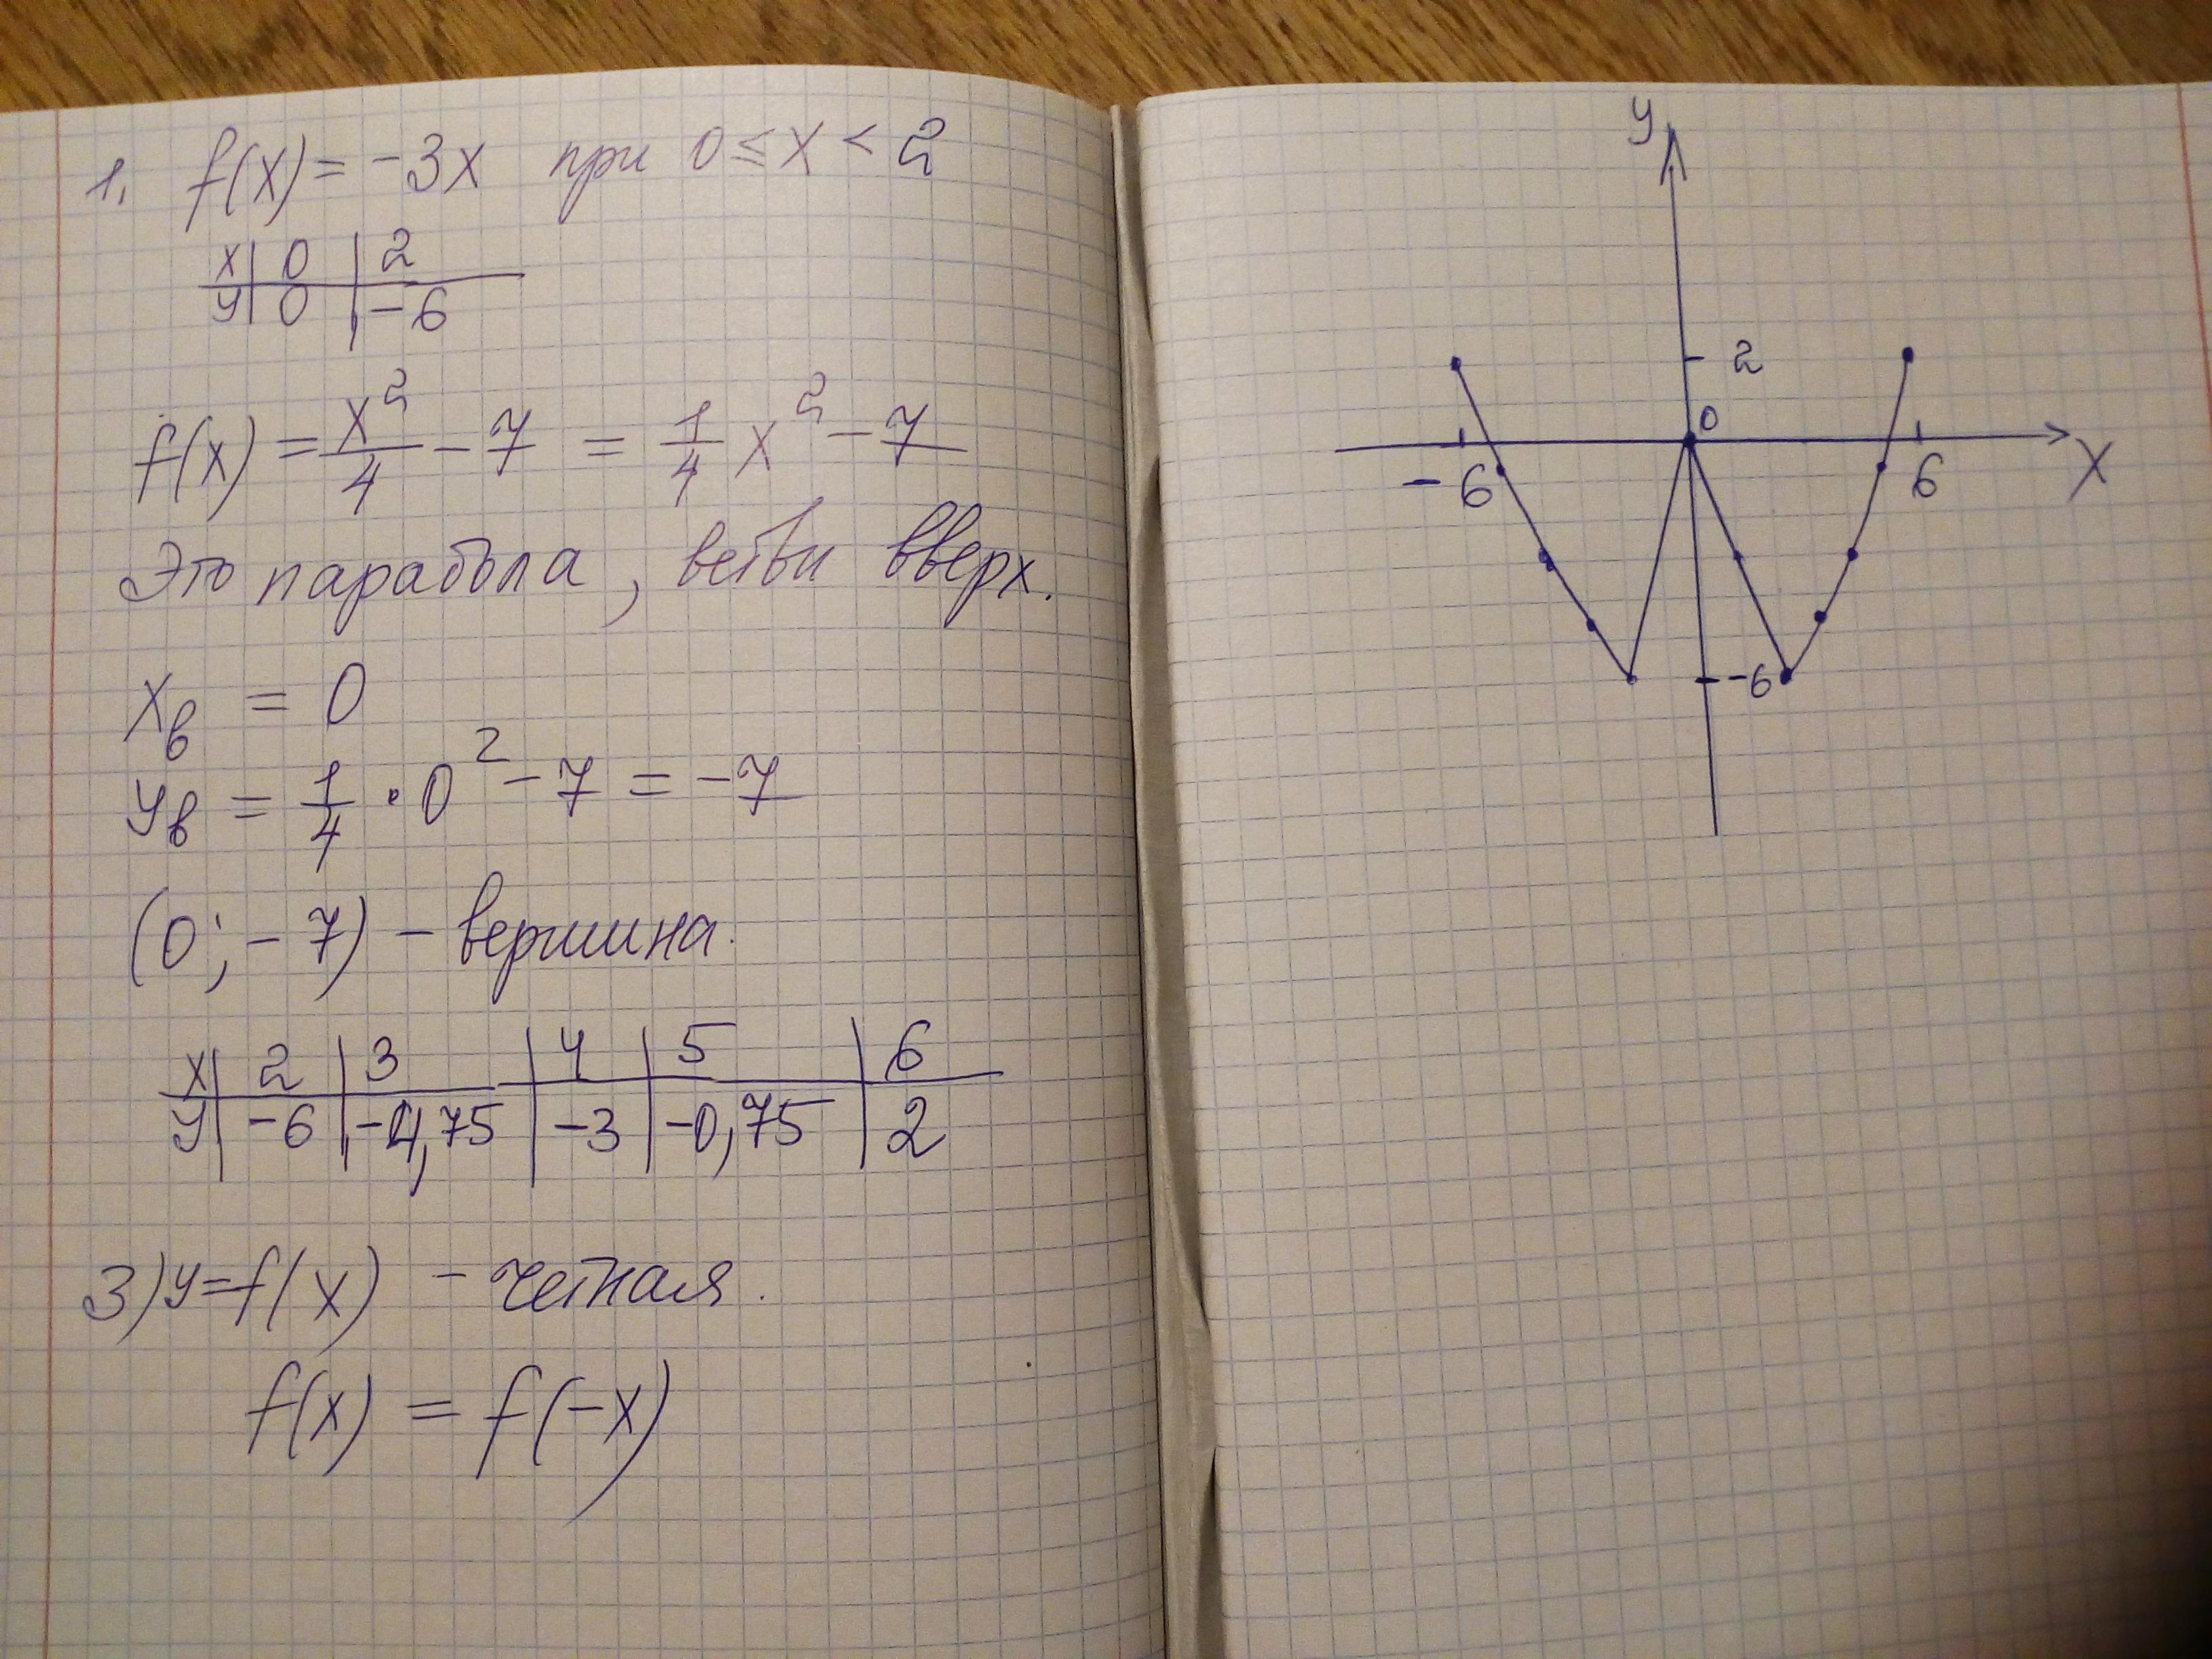 1. f(x) = -3x при 0 ≤ x < 2
x | 0 | 2
y | 0 | -6
f(x) = x²/4 - 7 = 1/4 x² - 7
Это парабола, ветви вверх.
xв = 0
yв = 1/4 · 0² - 7 = -7
(0; -7) - вершина.
x | 2 | 3 | 4 | 5 | 6
y | -6 | -4,75 | -3 | -0,75 | 2
3) y = f(x) - четная.
f(x) = f(-x)
y
2
0
-6
6
x
-6